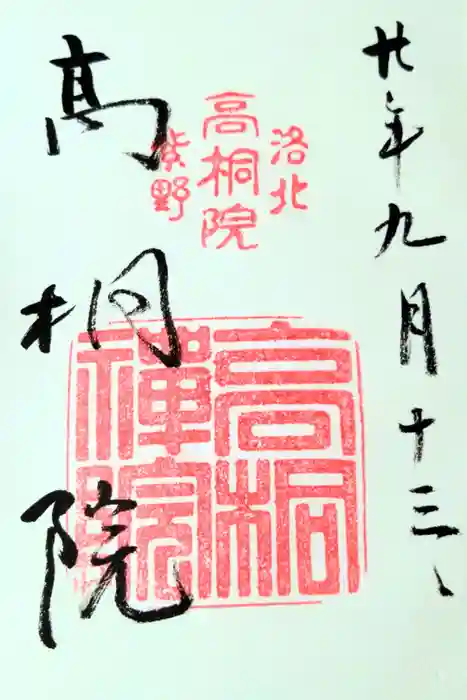 廿年九月十三、
洛北
高桐院
紫野
高桐院
高桐
禅院